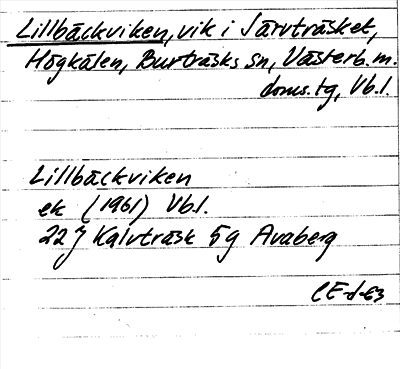 Lillbäckviken, vik i Järvträsket,
Högkälen, Burträsks sn, Västerb. m.
doms. tg, Vb.l.
Lillbäckviken
ek (1961) Vb.l.
22 J Kalvträsk 5g Avaberg
CE-d-63